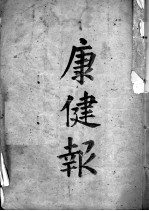 康健報